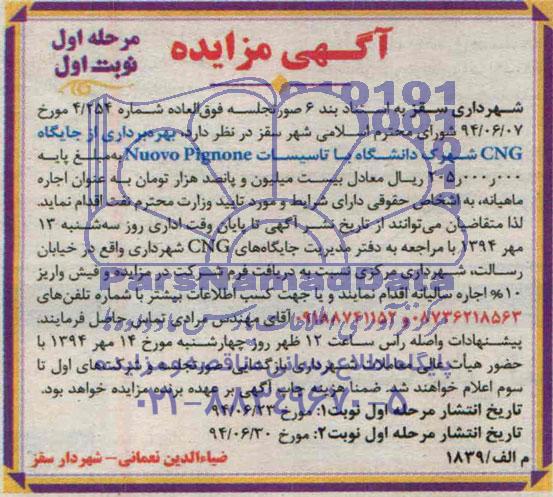 آگهی مزایده
مرحله اول
نوبت اول
شهرداری سقز به استناد بند ۶ صورتجلسه فوق‌العاده شماره ۴/۲۵۴ مورخ
۹۴/۰۶/۰۷ شورای محترم اسلامی شهر سقز در نظر دارد، بهره‌برداری از جایگاه
CNG شهرک دانشگاه با تاسیسات Nuovo Pignone به‌مبلغ پایه
۲۰۵٫۰۰۰٫۰۰۰ ریال معادل بیست میلیون و پانصد هزار تومان به عنوان اجاره
ماهیانه، به اشخاص حقوقی دارای شرایط و مورد تایید وزارت محترم نفت اقدام نماید.
لذا متقاضیان می‌توانند از تاریخ نشر آگهی تا پایان وقت اداری روز سه‌شنبه ۱۳
مهر ۱۳۹۴ با مراجعه به دفتر مدیریت جایگاه‌های CNG شهرداری واقع در خیابان
رسالت، شهرداری مرکزی نسبت به دریافت فرم شرکت در مزایده و فیش واریز
۱۰% اجاره سالیانه اقدام نمایند و یا جهت کسب اطلاعات بیشتر با شماره تلفن‌های
۰۸۷۳۶۲۱۸۵۶۳ و ۰۹۱۸۸۷۴۱۱۵۲ آقای مهندس مرادی تماس حاصل فرمایند.
پیشنهادات واصله رأس ساعت ۱۲ ظهر روز چهارشنبه مورخ ۱۴ مهر ۱۳۹۴ با
حضور هیأت عالی معاملات شهرداری بازگشایی صورتجلسه و شرکت‌های اول تا
سوم اعلام خواهند شد. ضمنا هزینه چاپ آگهی بر عهده برنده مزایده خواهد بود.
تاریخ انتشار مرحله اول نوبت۱: مورخ ۹۴/۰۶/۲۳
تاریخ انتشار مرحله اول نوبت۲: مورخ ۹۴/۰۶/۳۰
م الف/۱۸۳۹
ضیاءالدین نعمانی- شهردار سقز
ParsNamadData
پایگاه اطلاع رسانی مناقصه و مزایده
۰۲۱-۸۸۳۴۹۶۷۰-۵